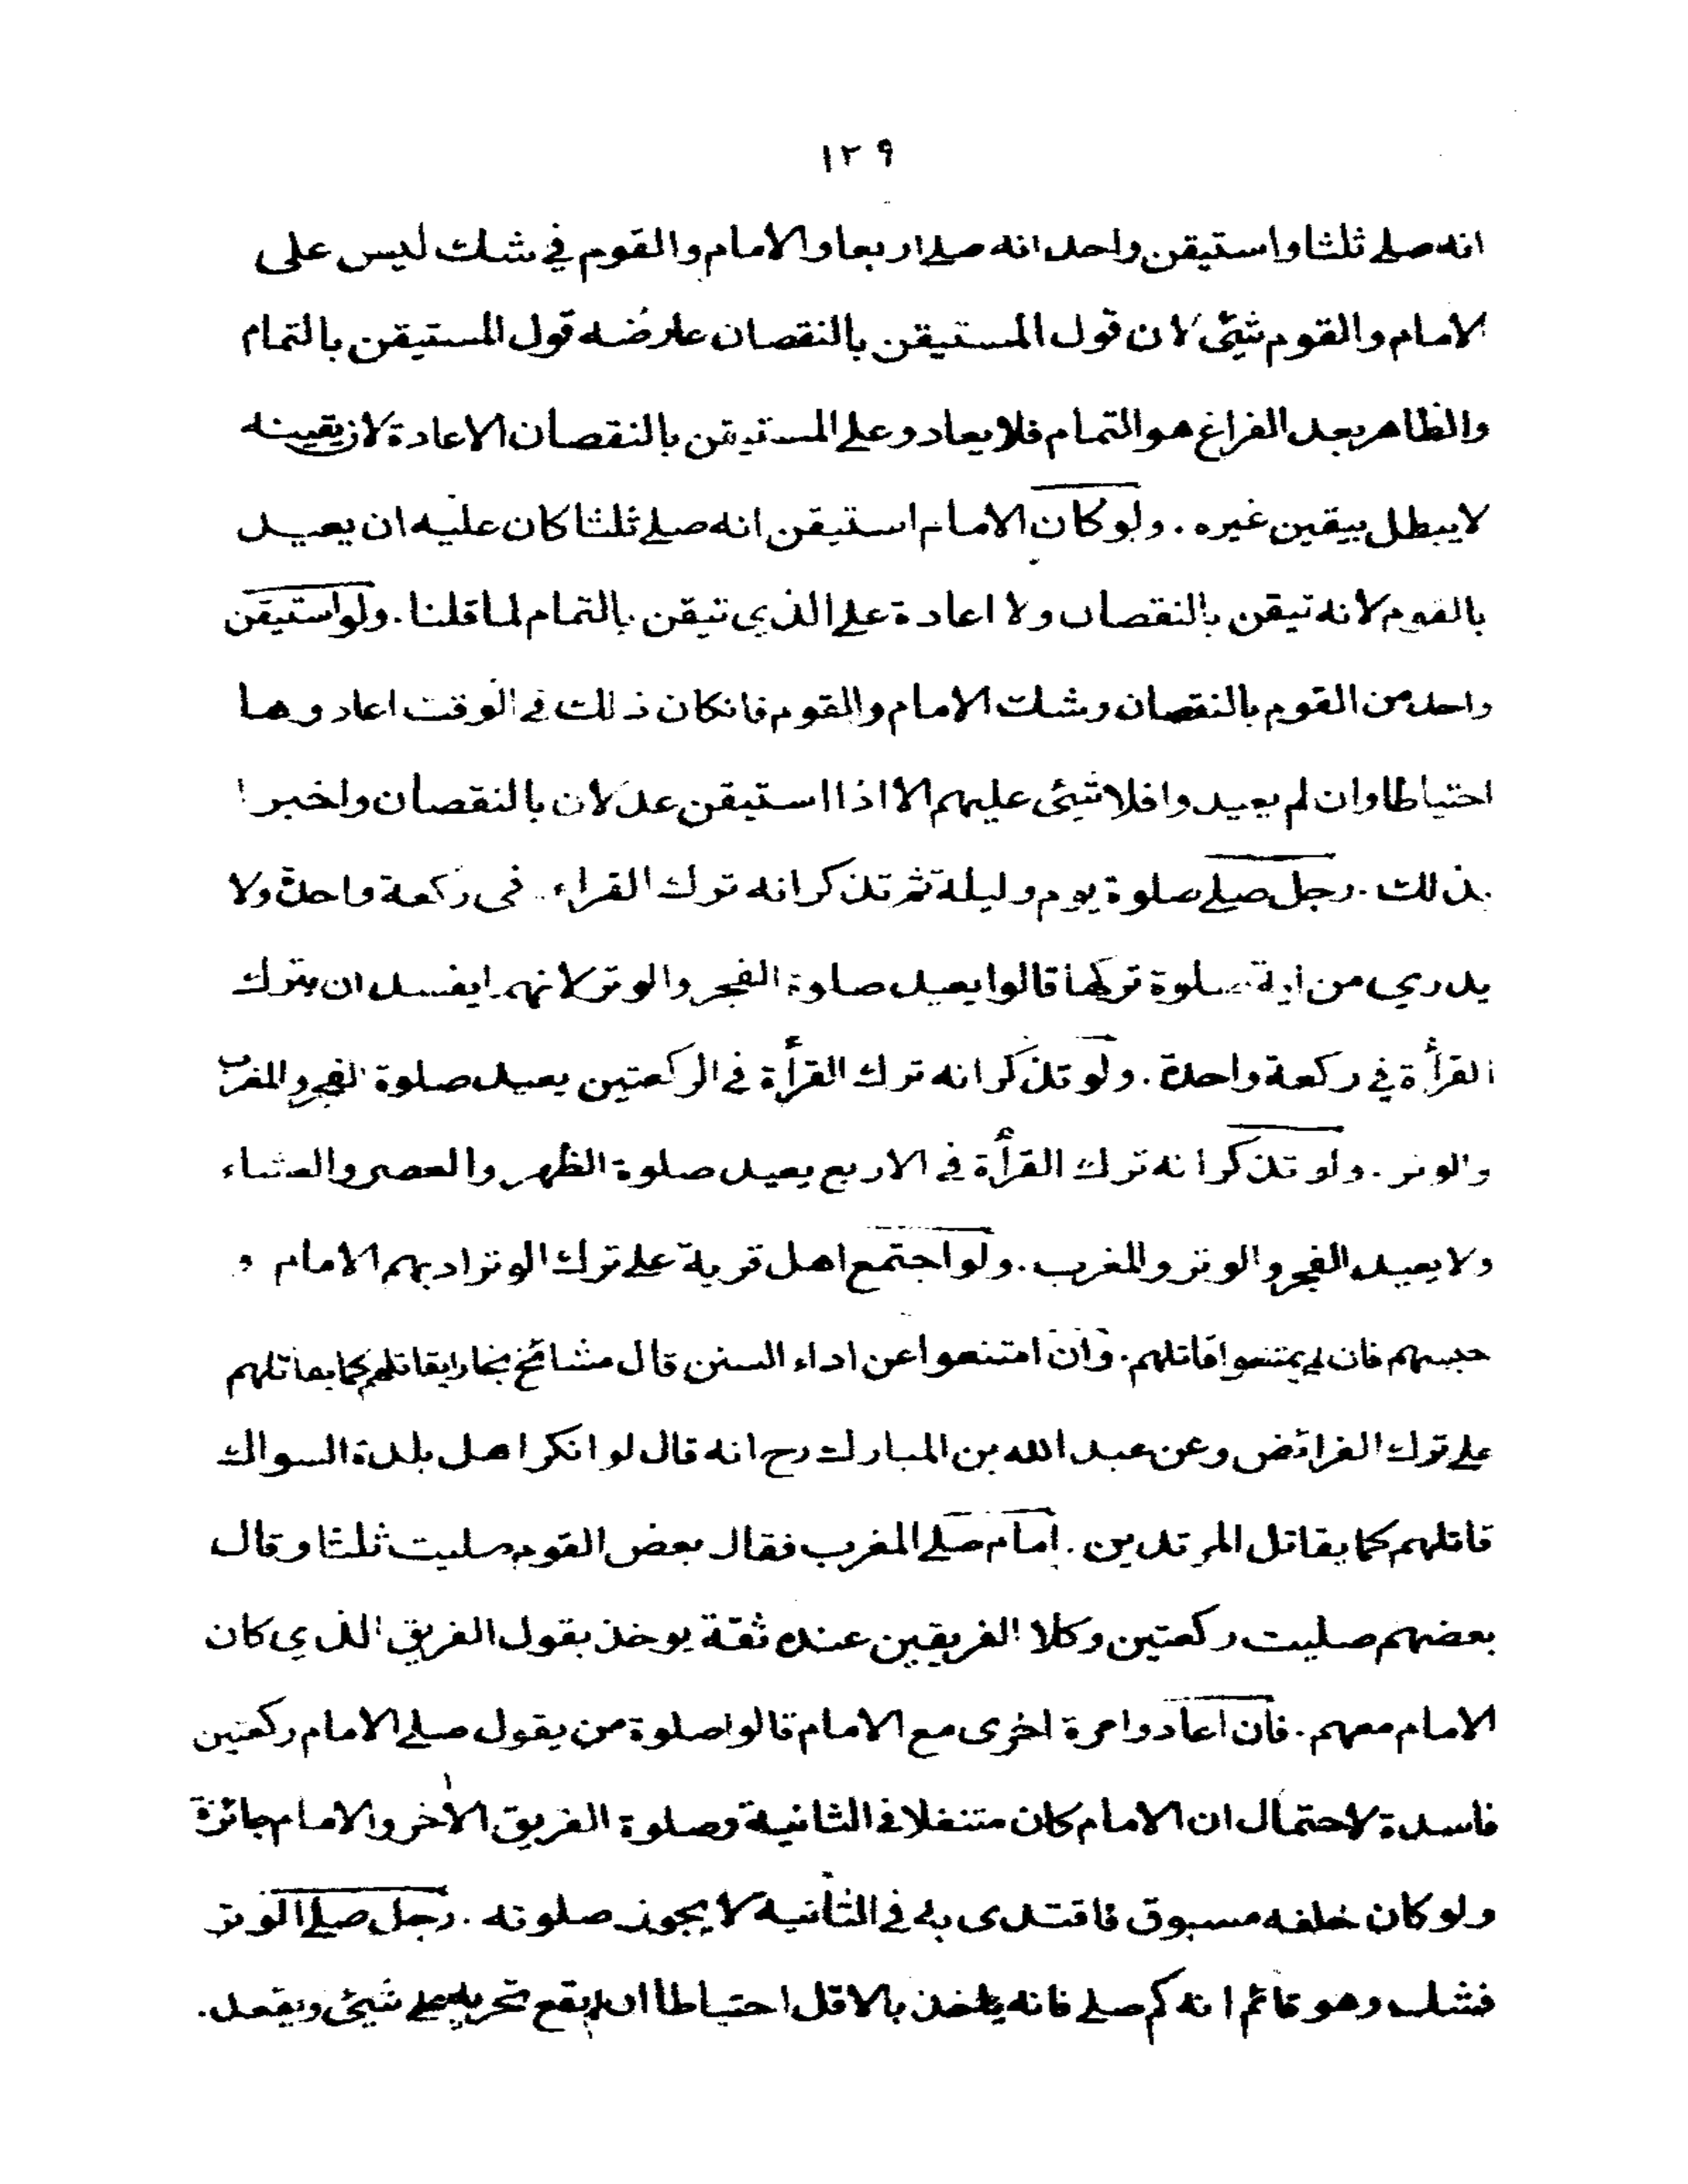 ١٢٩
انه صلے ثلثا واستيقن واحد انه صلے اربعا والامام والقوم في شك ليس على
الامام والقوم شئ لان قول المستيقن بالنقصان عارضه قول المستيقن بالتمام
والظاهر بعد الفراغ هو التمام فلا يعاد وعلے المستيقن بالنقصان الاعادة لان يقينه
لا يبطل بيقين غيره . ولو كان الامام استيقن انه صلے ثلثا كان عليه ان يعيد
بالقوم لانه تيقن بالنقصان ولا اعادة علے الذي تيقن بالتمام لما قلنا . ولو استيقن
واحد من القوم بالنقصان وشك الامام والقوم فانكان ذلك في الوقت اعادوها
احتياطا وان لم يعيدوا فلا شئ عليهم الا اذا استيقن عدلان بالنقصان واخبرا
بذلك . رجل صلے صلوة يوم وليلة ثم تذكر انه ترك القراءة فى ركعة واحدة ولا
يدري من اية صلوة تركها قالوا يعيد صلوة الفجر والوتر لانهما يفسدان بترك
القرأة في ركعة واحدة . ولو تذكر انه ترك القرأة في الركعتين يعيد صلوة الفجر والمغرب
والوتر . ولو تذكر انه ترك القرأة في الاربع يعيد صلوة الظهر والعصر والعشاء
ولا يعيد الفجر والوتر والمغرب . ولو اجتمع اهل قرية علے ترك الوتر ادبهم الامام و
حبسهم فان لم يمتنعوا قاتلهم . وان امتنعوا عن اداء السنن قال مشائخ بخارا يقاتلهم كما يقاتلهم
علے ترك الفرائض وعن عبد الله بن المبارك رح انه قال لو انكر اهل بلدة السواك
قاتلهم كما يقاتل المرتدين . امام صلے المغرب فقال بعض القوم صليت ثلثا وقال
بعضهم صليت ركعتين وكلا الفريقين عنده ثقة يوخذ بقول الفريق الذي كان
الامام معهم . فان اعادوا مرة اخرى مع الامام قالوا صلوة من يقول صلے الامام ركعتين
فاسدة لاحتمال ان الامام كان متنفلا في الثانية وصلوة الفريق الاخر والامام جائزة
ولو كان خلفه مسبوق فاقتدى به في الثانية لا يجوز صلوته . رجل صلے الوتر
فشك وهو قائم انه كم صلے فانه ياخذ بالاقل احتياطا ان لم يقع تحريه علے شئ ويقعد .